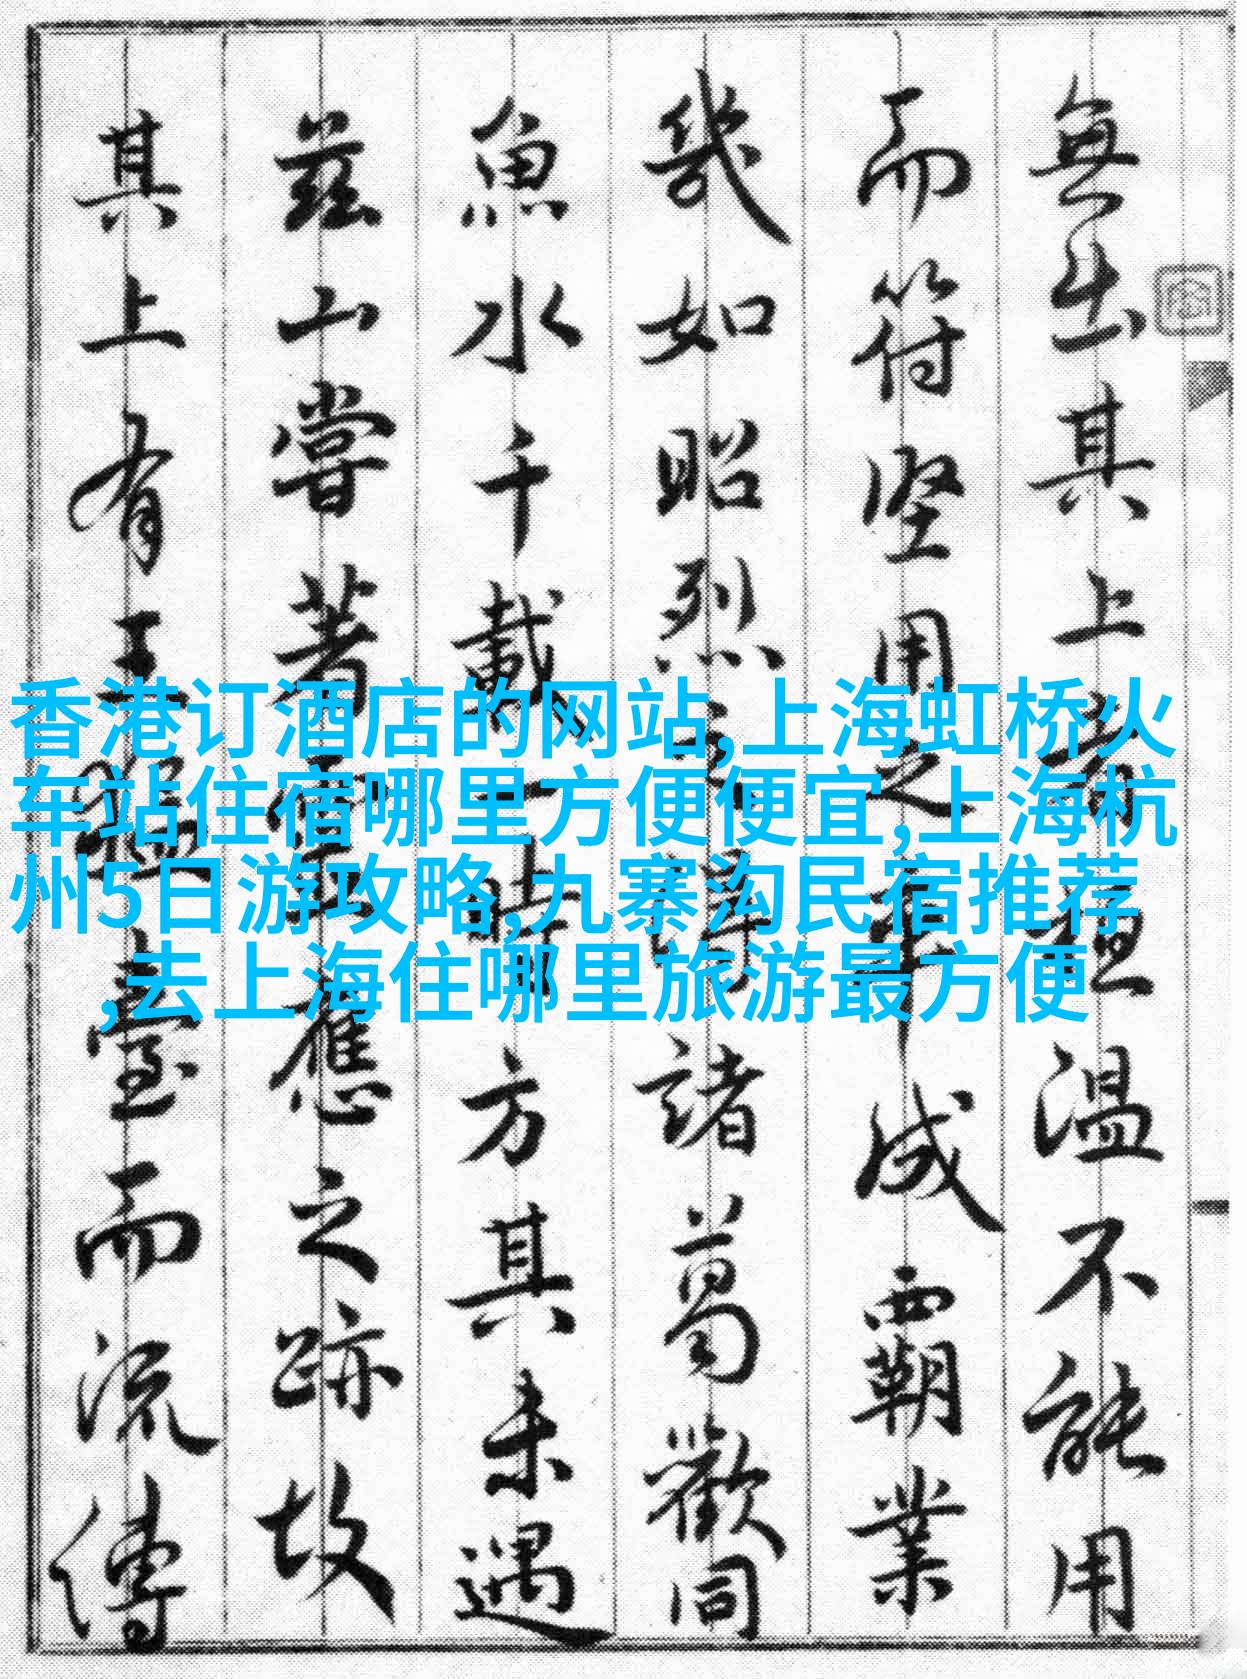 無出其上者桓温不能用
而符堅用之
成霸業
幾如昭烈之
諸葛歡同
魚水千載一時
方其未遇
茲山嘗著
應之跡故
其上有王猛臺而流傳
香港订酒店的网站,上海虹桥火
车站住宿哪里方便便宜,上海杭
州5日游攻略,九寨沟民宿推荐
,去上海住哪里旅游最方便